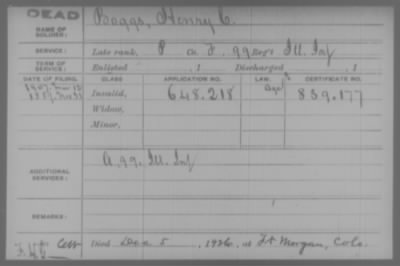 DEAD
NAME OF SOLDIER: Boggs, Henry C.
SERVICE: Late rank, P Co. F. 99 Reg't Ill. Inf
TERM OF SERVICE: Enlisted , 1 Discharged , 1
DATE OF FILING. CLASS. APPLICATION NO. LAW. CERTIFICATE NO.
Invalid, 648.218 839.177
Widow,
Minor,
ADDITIONAL SERVICES: A. 99. Ill. Inf
REMARKS:
Died Dec 5, 1926, at Ft Morgan, Colo.